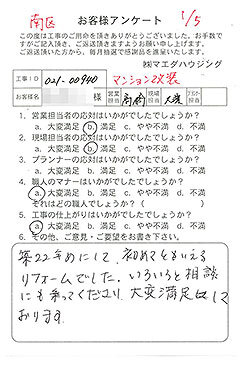 南区 お客様アンケート 1/5
この度は工事のご用命を頂きありがとうございました。お手数で
すがご記入頂き、ご返送頂きますようお願い申し上げます。
ご返送頂いた方から、毎月抽選で感謝品を進呈いたします。
㈱マエダハウジング
工事ID 021-00940 マンション改装
お客様名 様 営業担当 現場担当 プランナー担当
1. 営業担当者の応対はいかがでしたでしょうか?
a. 大変満足 b. 満足 c. やや不満 d. 不満
2. 現場担当者の応対はいかがでしたでしょうか?
a. 大変満足 b. 満足 c. やや不満 d. 不満
3. プランナーの応対はいかがでしたでしょうか?
a. 大変満足 b. 満足 c. やや不満 d. 不満
4. 職人のマナーはいかがでしたでしょうか?
a. 大変満足 b. 満足 c. やや不満 d. 不満
それはどの職人でしょうか?( )
5. 工事の仕上がりはいかがでしたでしょうか?
a. 大変満足 b. 満足 c. やや不満 d. 不満
6. その他、ご意見・ご要望をお書き下さい。
築22年めにして、初めてともいえる
リフォームでした。いろいろと相談
にも乗ってくださり、大変満足して
おります。